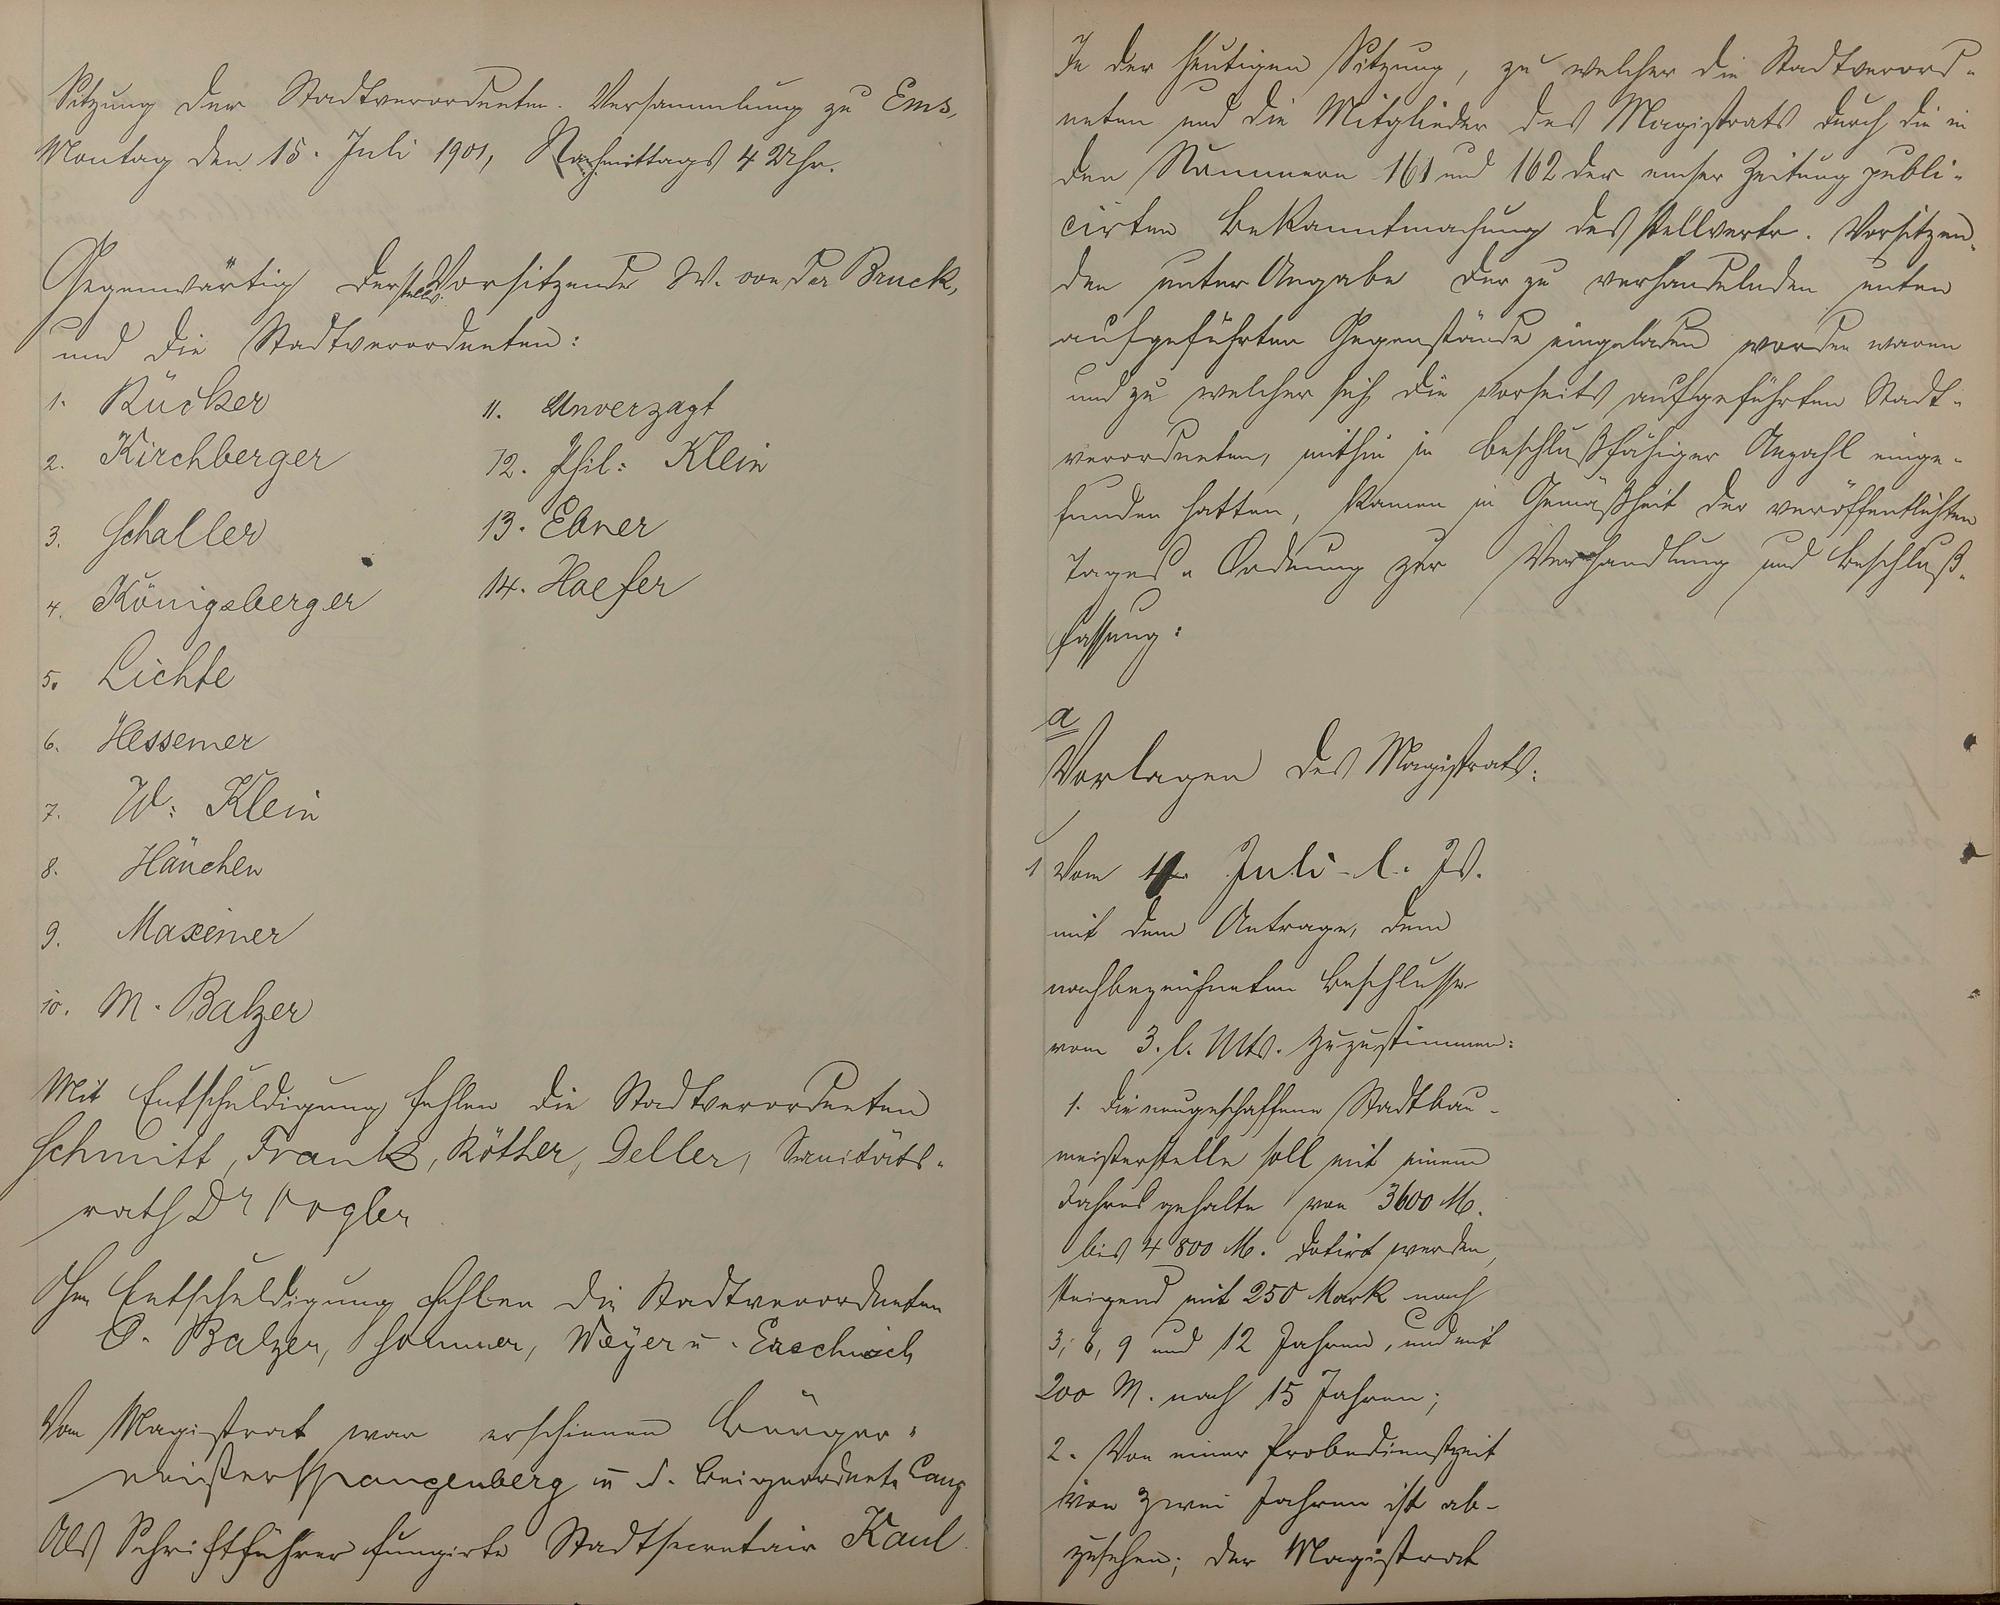 Sitzung der Stadtverordneten-Versammlung zu Ems,
Montag den 15. Juli 1901, Nachmittags 4 Uhr.
Gegenwärtig der stellv. Vorsitzende W. von der Bruck,
und die Stadtverordneten:
1. Rücker
2. Kirchberger
3. Schaller
4. Königsberger
5. Lichte
6. Hessemer
7. W. Klein
8. Hänchen
9. Maxeiner
10. M. Balzer
11. Unverzagt
12. Phil: Klein
13. Ebner
14. Haefer
Mit Entschuldigung fehlen die Stadtverordneten
Schmitt, Frank, Köther, Deller, Sanitäts-
rath Dr Vogler
Ohne Entschuldigung fehlen die Stadtverordneten
O. Balzer, Sommer, Weyer u.
Vom Magistrat war erschienen Bürger-
meister Spangenberg u d. Beigeordnete Lang
Als Schriftführer fungirte Stadtsecretair Kaul.
In der heutigen Sitzung, zu welcher die Stadtverord-
neten und die Mitglieder des Magistrats durch die in
den Nummern 161 und 162 der emser Zeitung publi-
cirten Bekanntmachung des stellvertr. Vorsitzen-
den unter Angabe der zu verhandelnden unten
aufgeführten Gegenstände eingeladen worden waren
und zu welcher sich die vorseits aufgeführten Stadt-
verordneten, mithin in beschlußfähiger Anzahl einge-
funden hatten, kamen in Gemäßheit der veröffentlichten
Tages-Ordnung zur Verhandlung und Beschluß-
fassung:
a
Vorlagen des Magistrats:
1 Vom Juli l. Js.
mit dem Antrage, dem
nachbezeichneten Beschlusse
vom 3. l. Mts. zuzustimmen:
1. Die neugeschaffene Stadtbau-
meisterstelle soll mit einem
Jahresgehalte von 3600 M.
bis 4800 M. dotirt werden,
steigend mit 250 Mark nach
3, 6, 9 und 12 Jahren, und mit
200 M. nach 15 Jahren;
2. Von einer Probedienstzeit
von zwei Jahren ist ab-
zusehen; der Magistrat